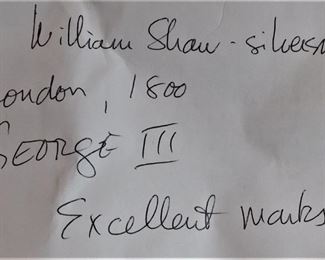 William Shaw - silversm
London, 1800
GEORGE III
Excellent marks